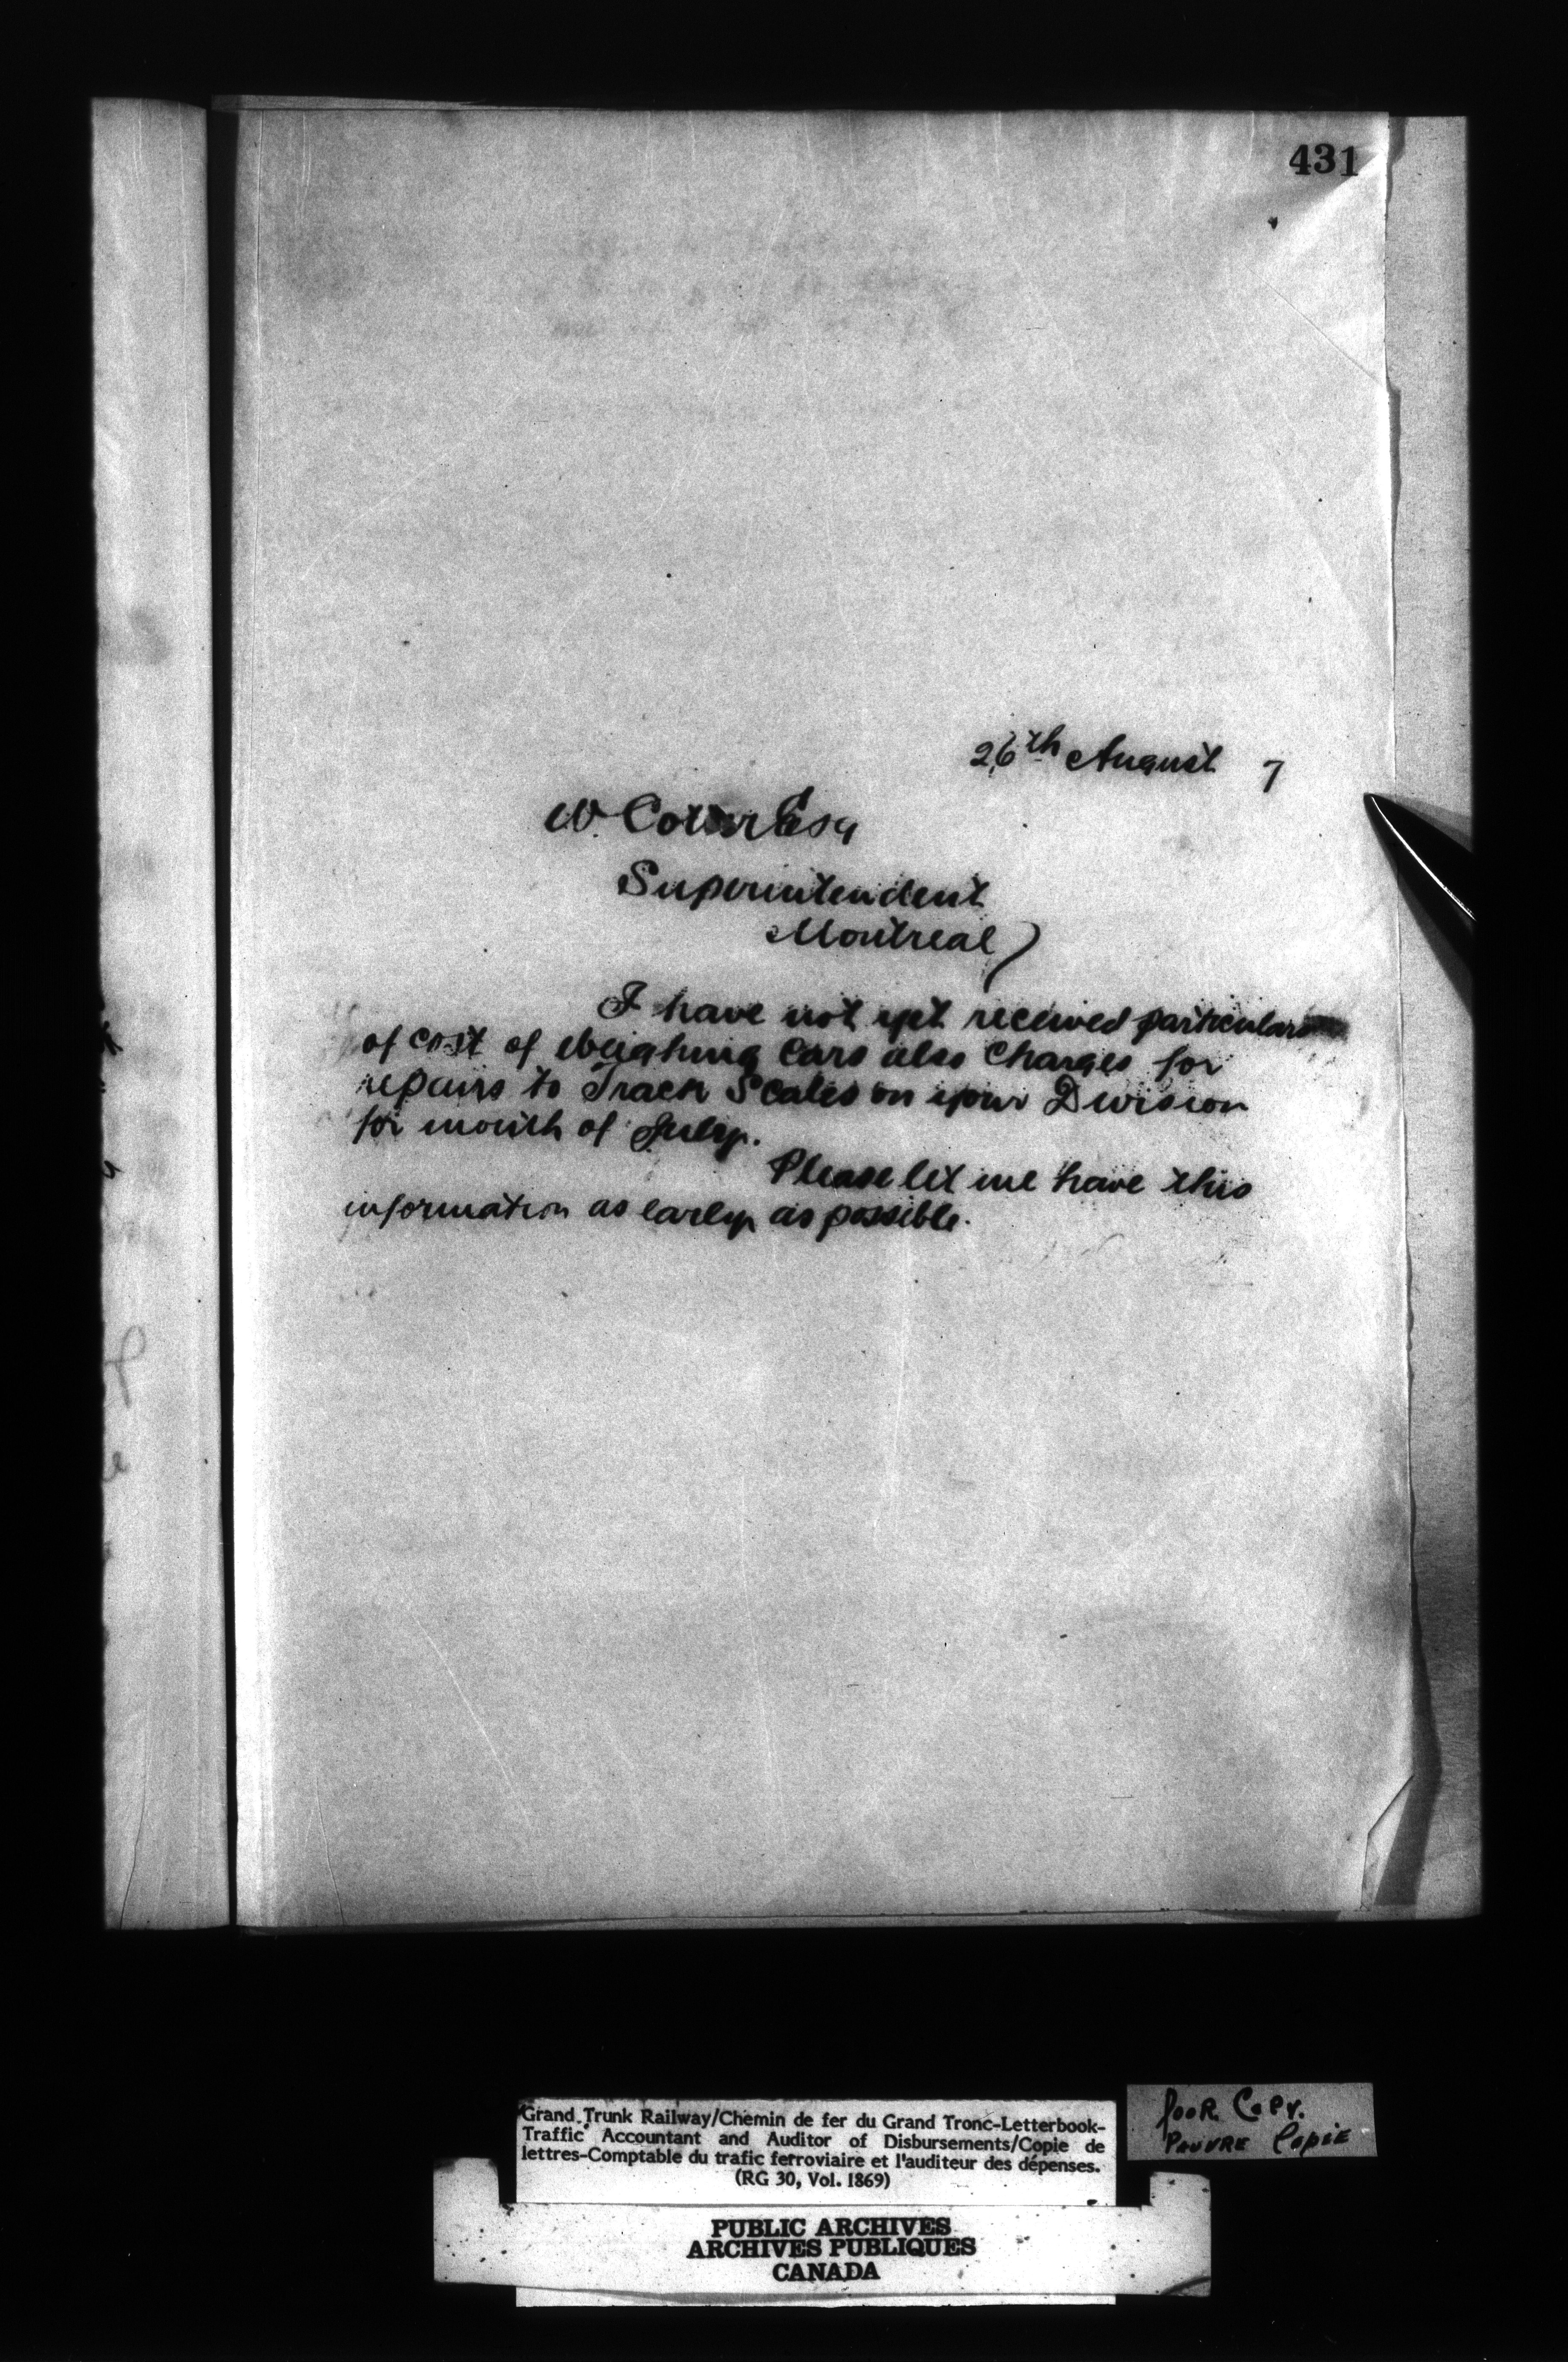 431
26th August 7
W. Cotter Esq
Superintendent
Montreal)
I have not yet received particulars
of cost of Weighing Cars also Charges for
repairs to Track Scales on your Division
for month of July.
Please let me have this
information as early as possible.
Grand Trunk Railway/Chemin de fer du Grand Tronc-Letterbook-
Traffic Accountant and Auditor of Disbursements/Copie de
lettres-Comptable du trafic ferroviaire et l'auditeur des dépenses.
(RG 30, Vol. 1869)
POOR COPY.
PAUVRE COPIE
PUBLIC ARCHIVES
ARCHIVES PUBLIQUES
CANADA